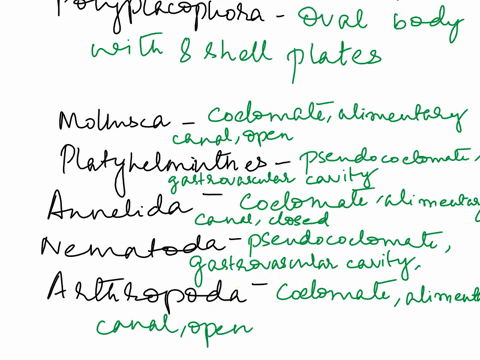 Polyplacophora - Oval body
with 8 shell plates
Mollusca - Coelomate, alimentary
canal, open
Platyhelminthes - pseudocoelomate,
gastrovascular cavity
Annelida - Coelomate, alimentary
canal, closed
Nematoda - pseudocoelomate,
gastrovascular cavity,
Arthropoda - Coelomate, aliment
canal, open